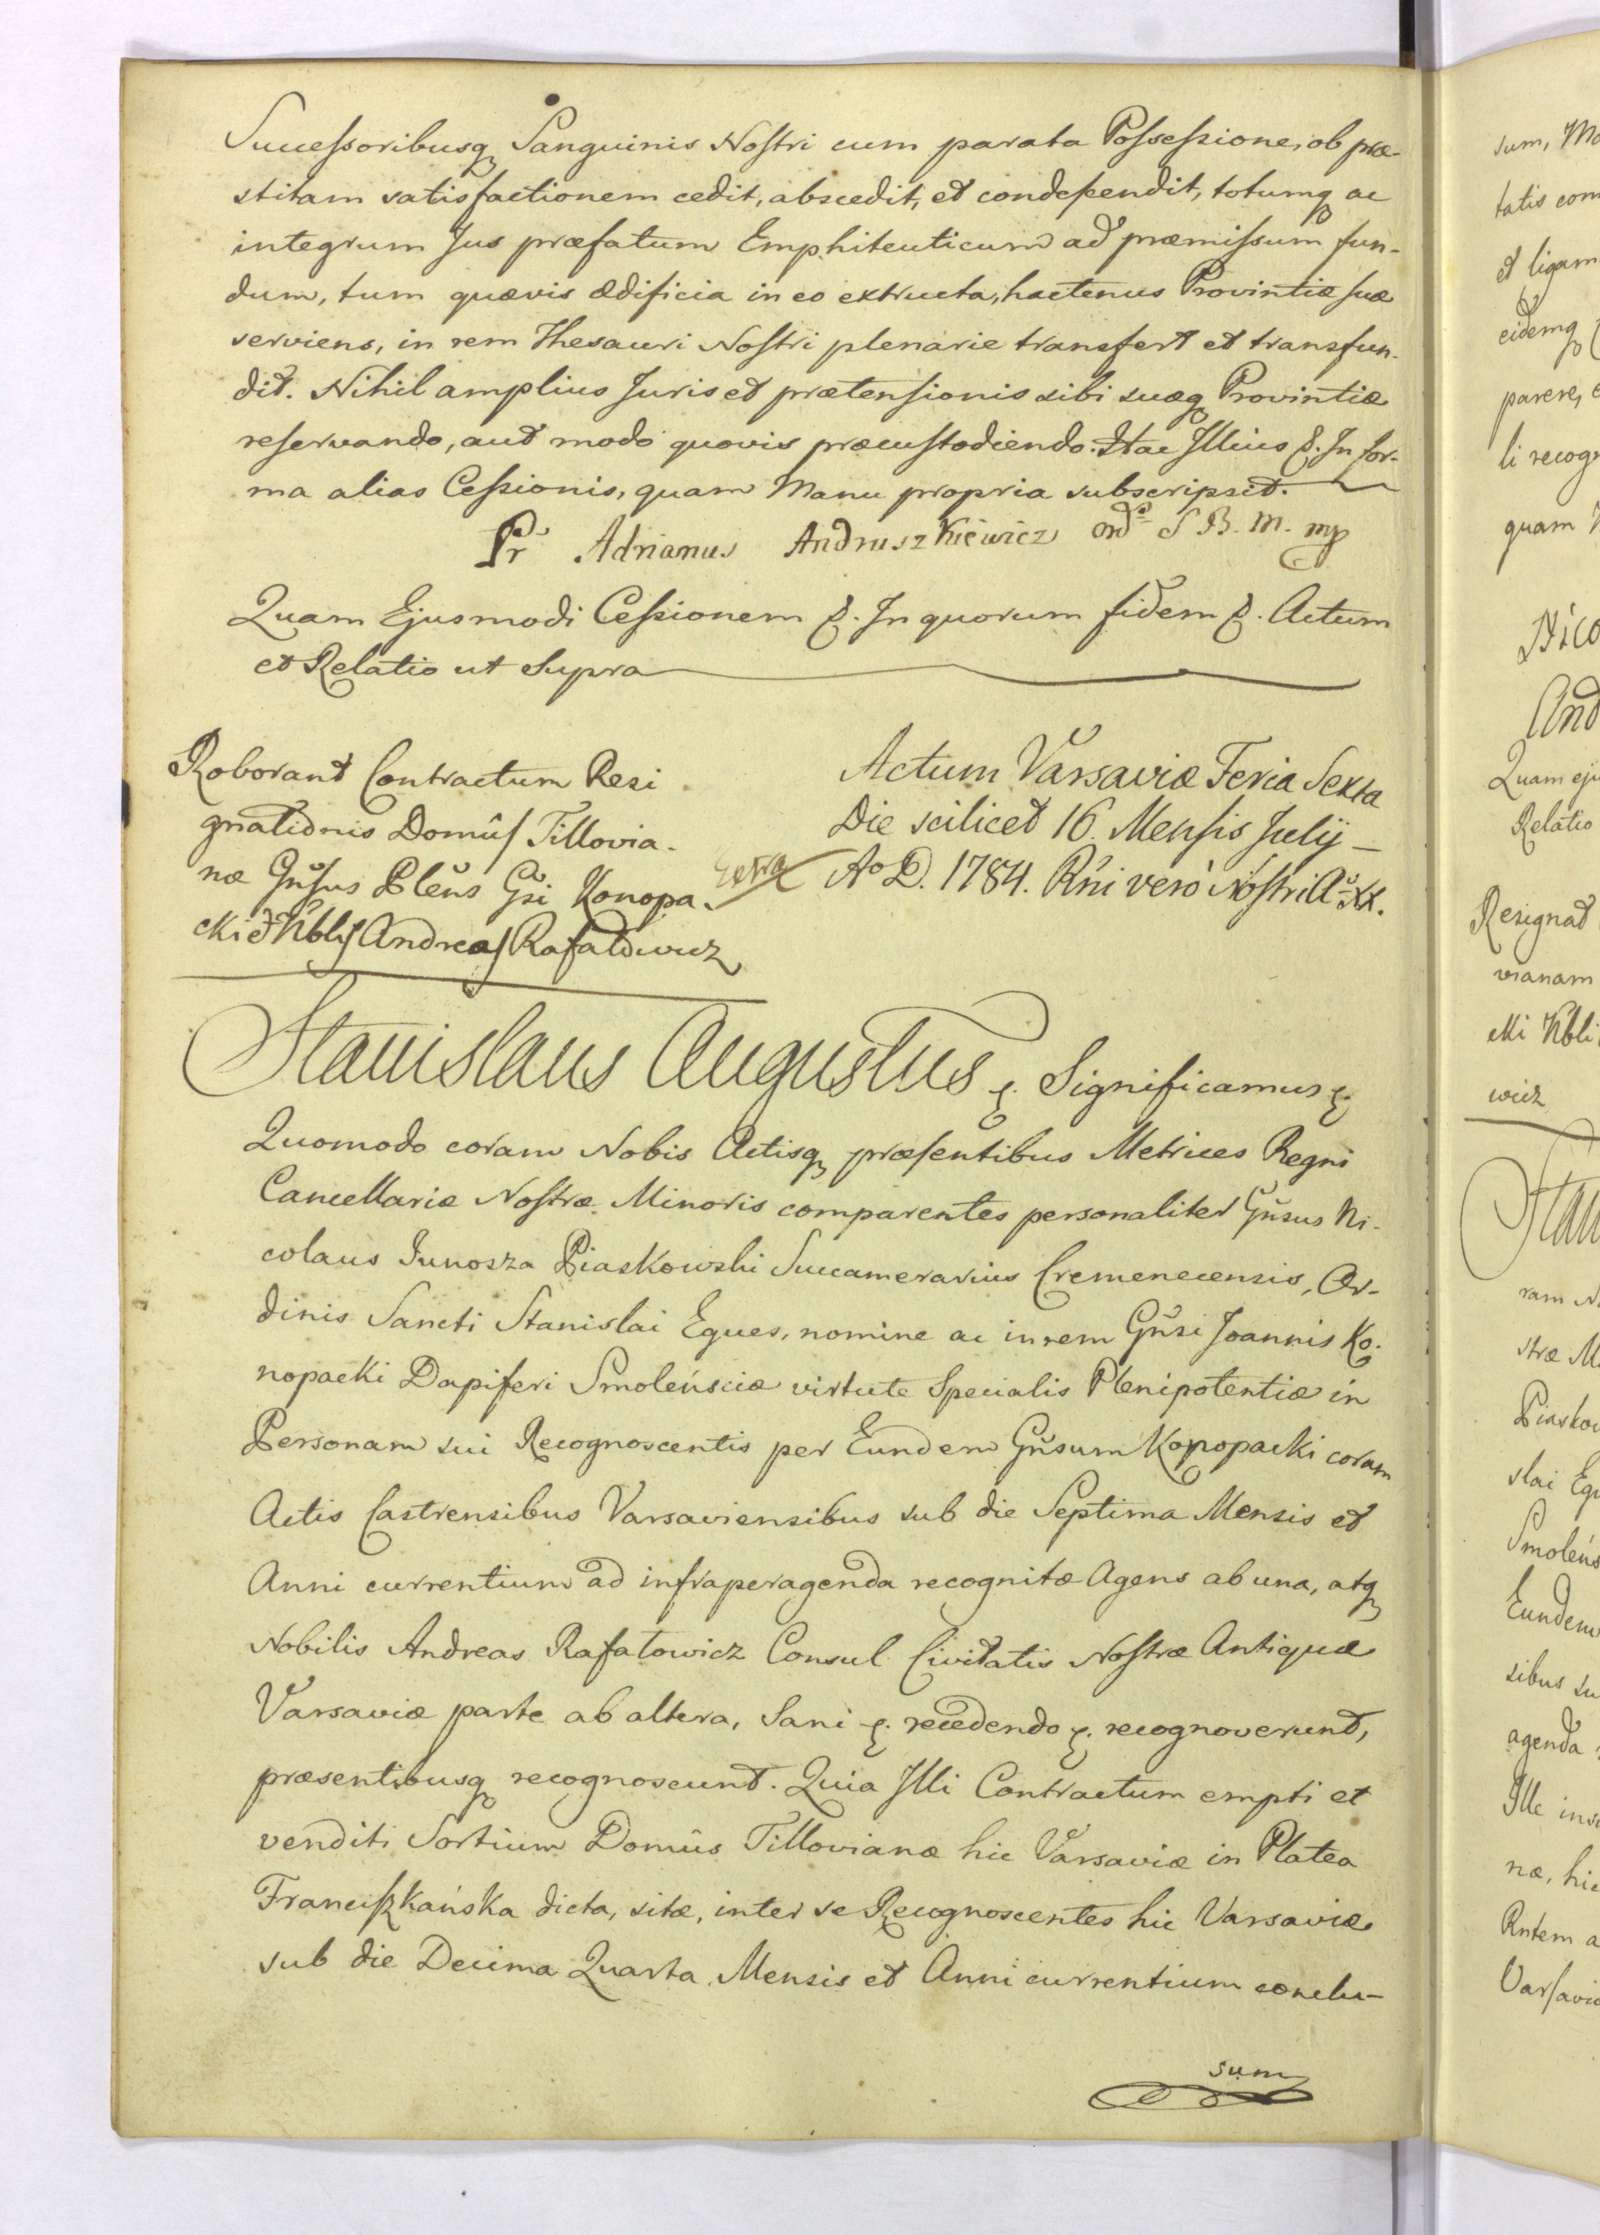 Successoribusq Sanguinis Nostri cum parata Possessione, ob præ-
stitam satisfactionem cedit, abscedit, et condescendit, totumq ac
integrum Jus præfatum Emphiteuticum ad præmissum fun-
dum, tum quævis ædificia in eo extructa, hactenus Provintiæ suæ
serviens, in rem Thesauri Nostri plenarie transfert et transfun-
dit. Nihil amplius Juris et prætensionis sibi suæq Provintiæ
reservando, aut modo quovis præcustodiendo. Hac Illius &. In for-
ma alias Cessionis, quam Manu propria subscripsit.
Fr Adrianus Andruszkiewicz Ord S B. M. mp
Quam Ejusmodi Cessionem &. In quorum fidem &. Actum
et Relatio ut Supra
Roborant Contractum Resi
gnationis Domûs Tillovia-
næ Gñsus Pleñs Gsi Konopa-
cki et Nblis Andreas Rafałowicz
Actum Varsaviæ Feria Sexta
Die scilicet 16. Mensis Julij
Ao D. 1784. Rñi vero Nostri Ao XX.
Stanislaus Augustus &. Significamus &.
Quomodo coram Nobis Actisq præsentibus Metrices Regni
Cancellariæ Nostræ Minoris comparentes personaliter Gñsus Ni-
colaus Junosza Piaskowski Succamerarius Cremenecensis, Or-
dinis Sancti Stanislai Eques, nomine ac in rem Gñsi Joannis Ko-
nopacki Dapiferi Smoleńsciæ virtute Specialis Plenipotentiæ in
Personam sui Recognoscentis per Eundem Gñsum Konopacki coram
Actis Castrensibus Varsaviensibus sub die Septima Mensis et
Anni currentium ad infraperagenda recognitæ Agens ab una, atq
Nobilis Andreas Rafałowicz Consul Civitatis Nostræ Antiquæ
Varsaviæ parte ab altera, Sani &. recedendo &. recognoverunt,
præsentibusq recognoscunt. Quia Illi Contractum empti et
venditi Sortium Domûs Tillovianæ hic Varsaviæ in Platea
Franciszkańska dicta, sitæ, inter se Recognoscentes hic Varsaviæ
sub die Decima Quarta Mensis et Anni currentium conclu-
sum
sum,
tatis
et ligam
eidemq
parere,
li recog
quam
Nico
And
Quam eju
Relatio
Resignat
vianam
cki Nbli
wicz
Stan
ram
stræ
Piaskow
slai Equ
Smoleńs
Eundem
sibus su
agenda
Ille
næ, hic
Rntem a
Varsavi